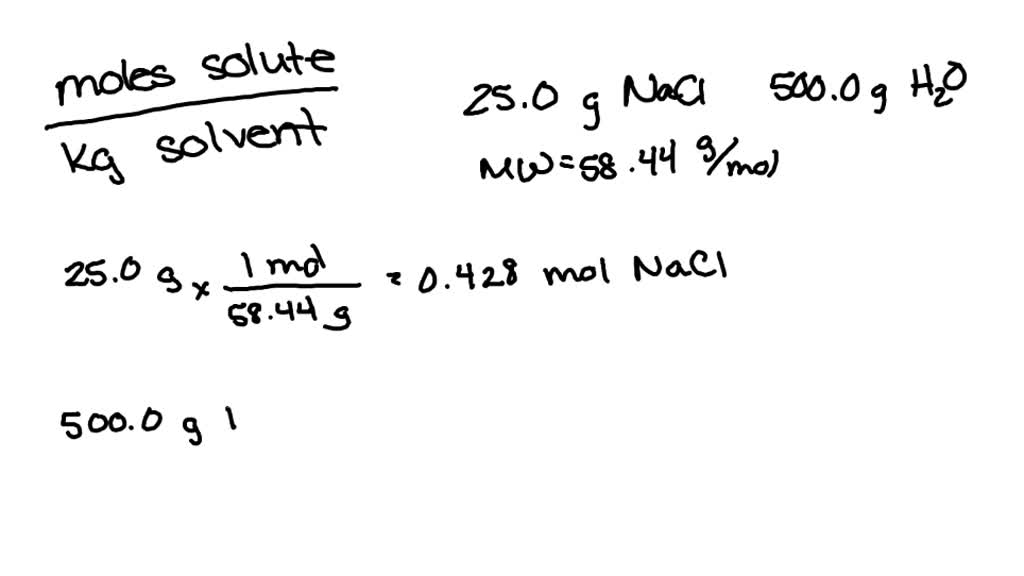 moles solute
kg solvent
25.0 g NaCl 500.0 g H₂O
MW = 58.44 g/mol
25.0 g x 1 mol / 58.44 g = 0.428 mol NaCl
500.0 g |